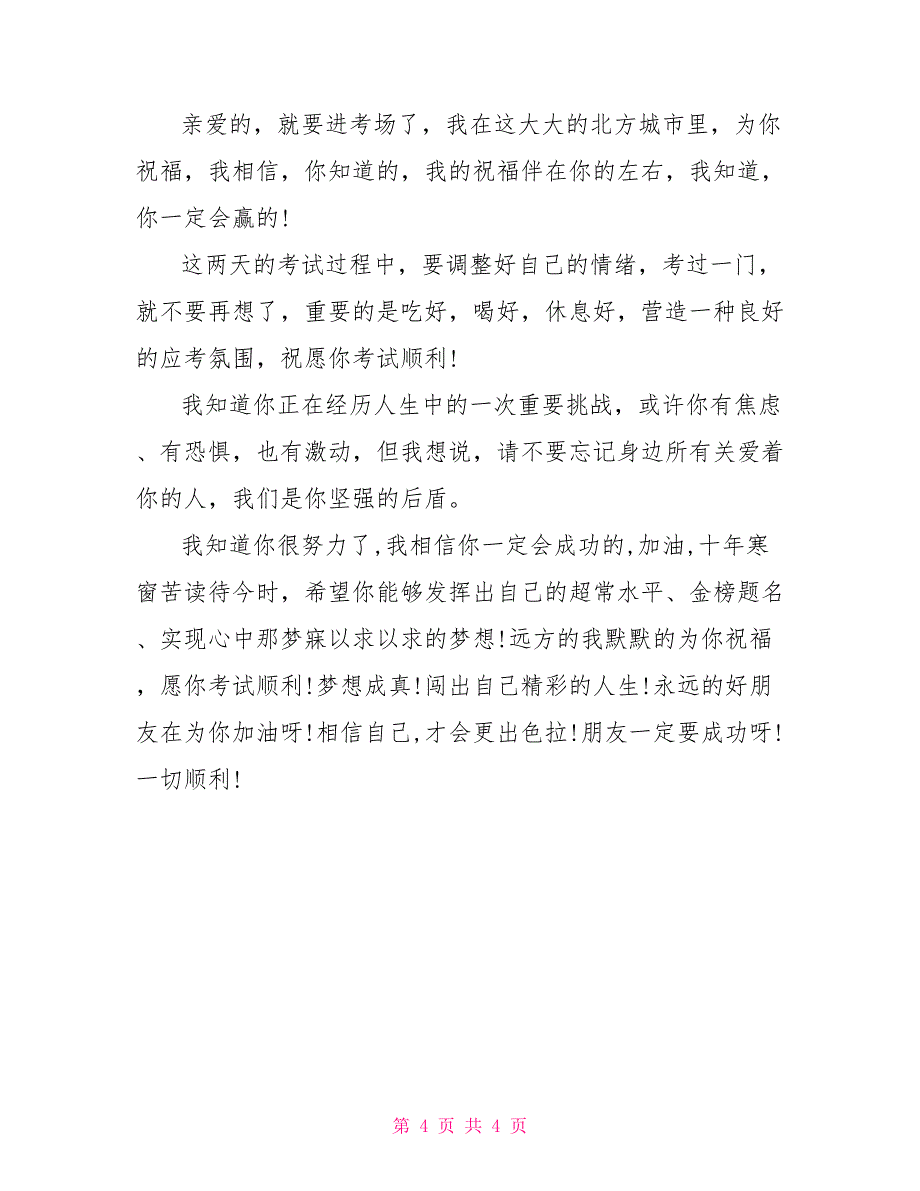 亲爱的，就要进考场了，我在这大大的北方城市里，为你
祝福，我相信，你知道的，我的祝福伴在你的左右，我知道，
你一定会赢的!
这两天的考试过程中，要调整好自己的情绪，考过一门，
就不要再想了，重要的是吃好，喝好，休息好，营造一种良好
的应考氛围，祝愿你考试顺利!
我知道你正在经历人生中的一次重要挑战，或许你有焦虑
、有恐惧，也有激动，但我想说，请不要忘记身边所有关爱着
你的人，我们是你坚强的后盾。
我知道你很努力了,我相信你一定会成功的,加油,十年寒
窗苦读待今时，希望你能够发挥出自己的超常水平、金榜题名
、实现心中那梦寐以求以求的梦想!远方的我默默的为你祝福
，愿你考试顺利!梦想成真!闯出自己精彩的人生!永远的好朋
友在为你加油呀!相信自己,才会更出色拉!朋友一定要成功呀!
一切顺利!
第 4 页 共 4 页